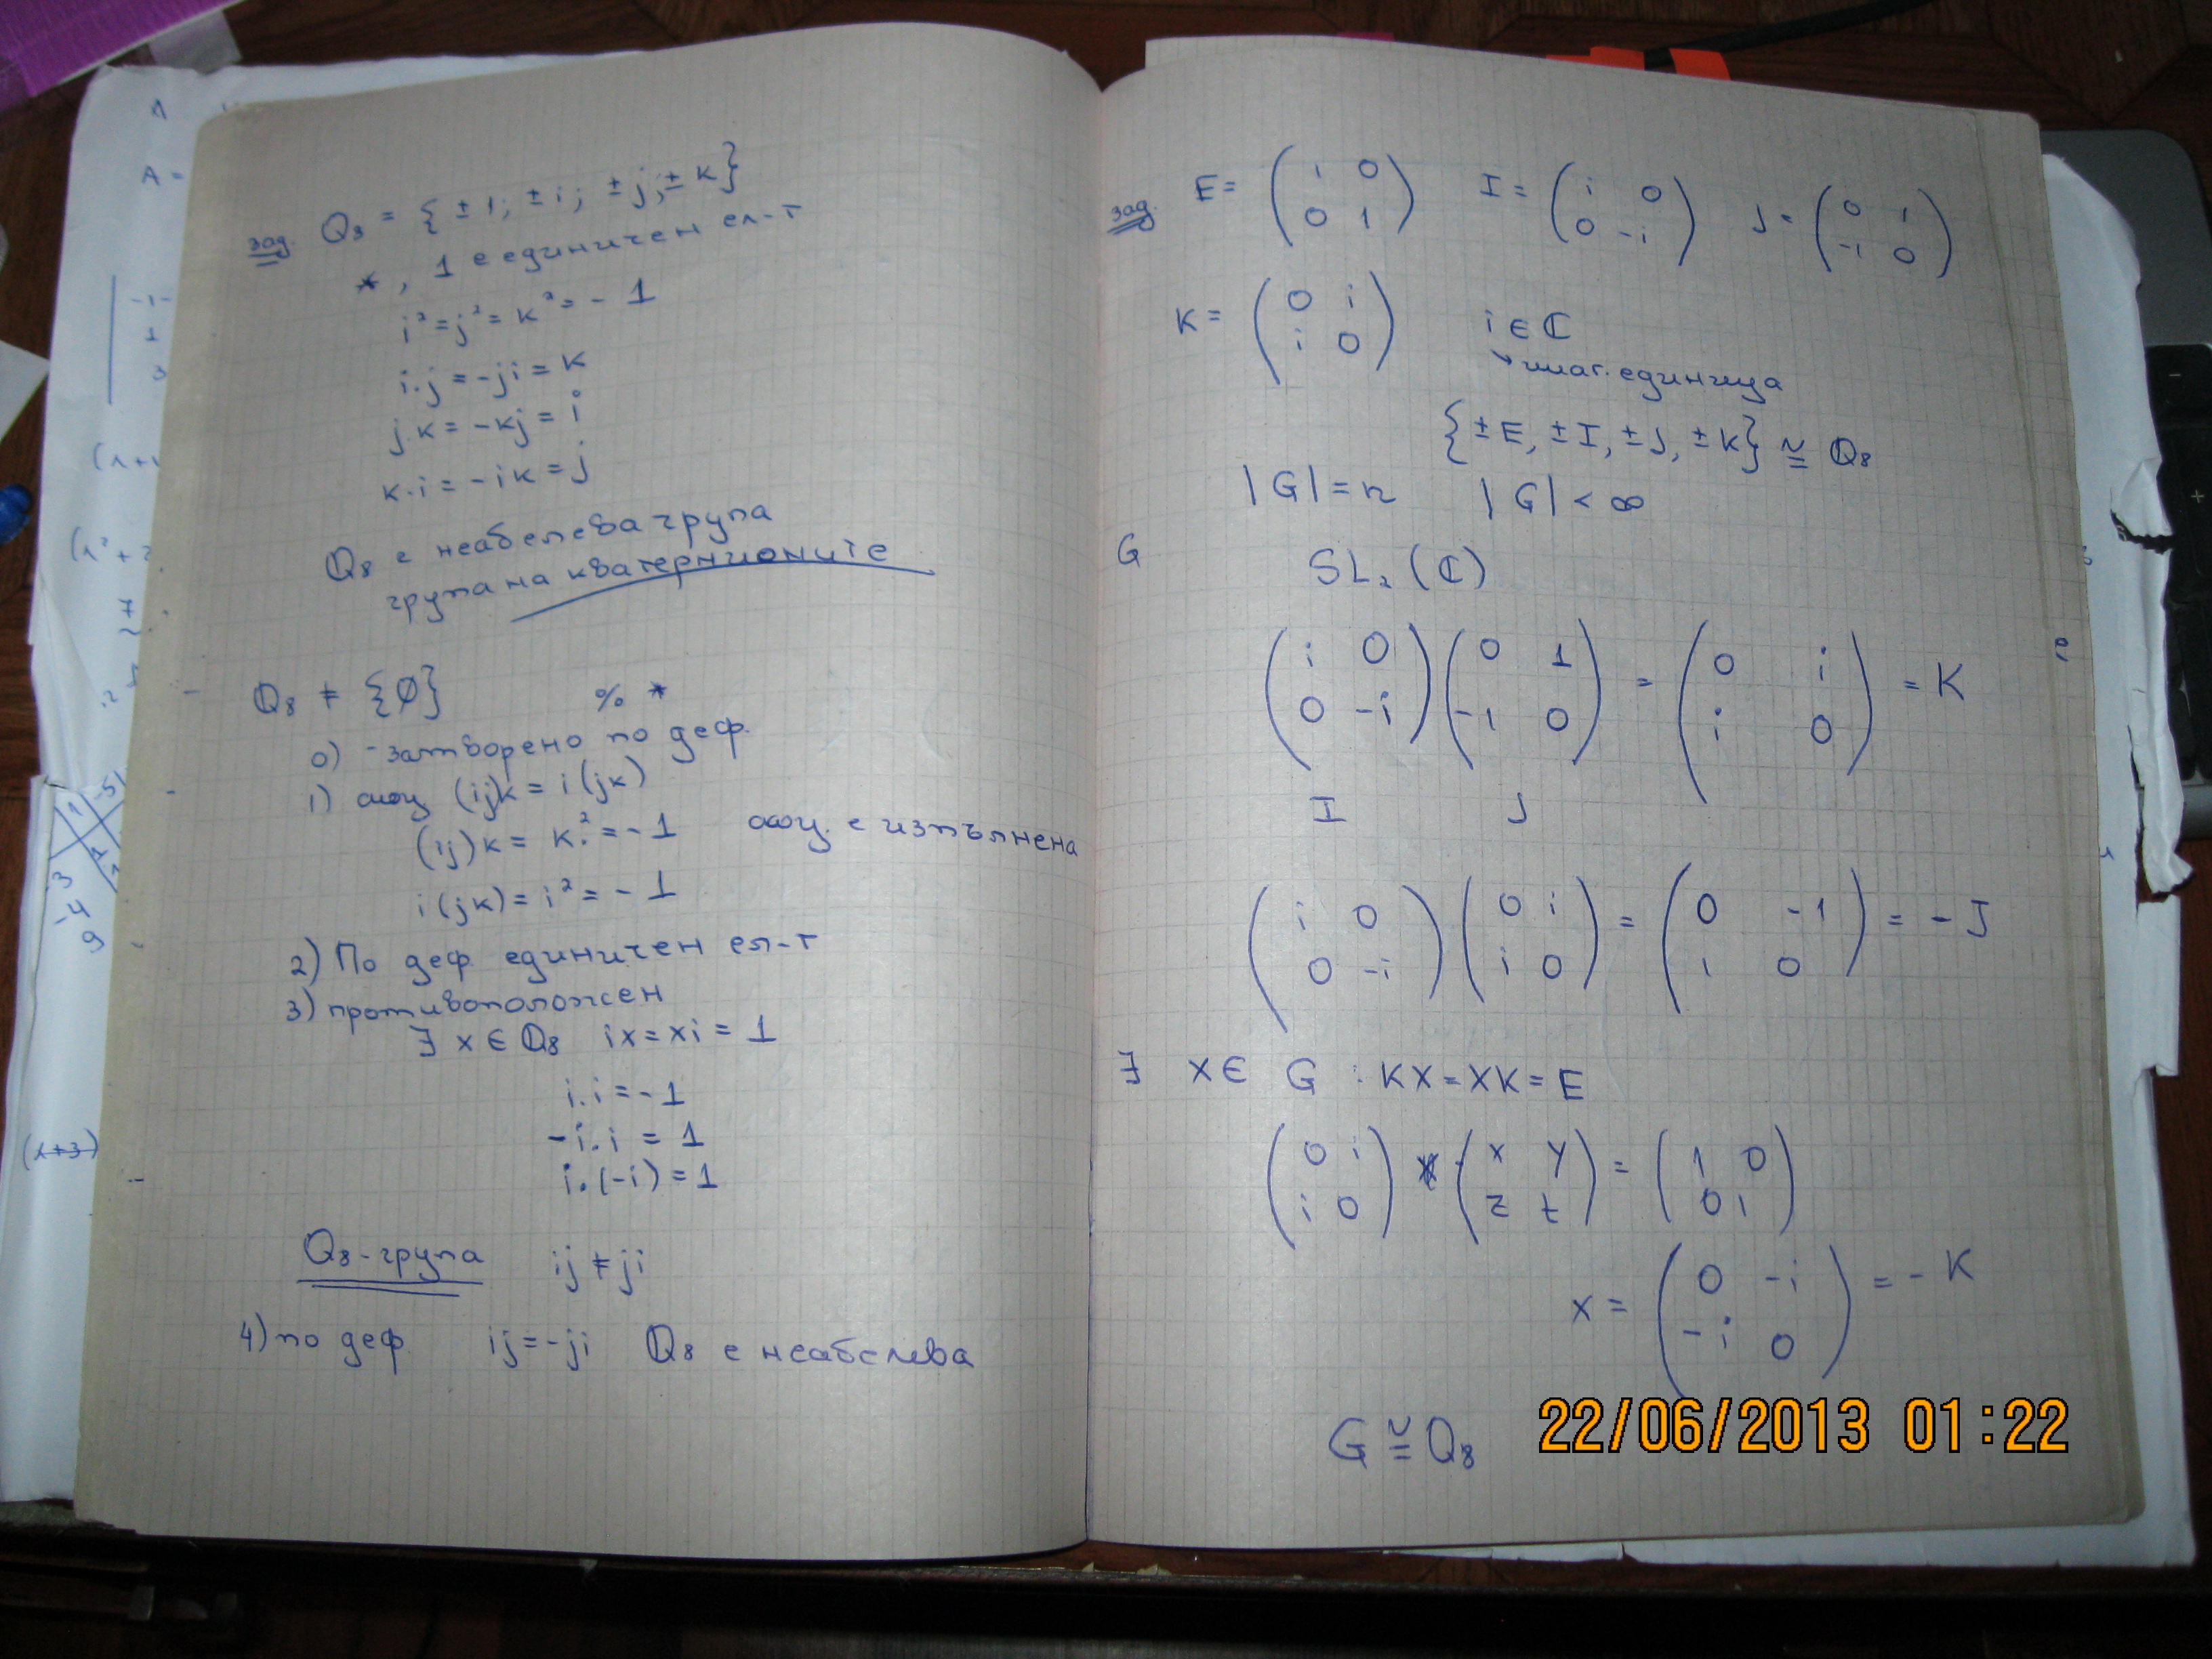 зад. Q₈ = { ± 1; ± i; ± j; ± k}
*, 1 е единичен ел-т
i² = j² = k² = - 1
i.j = -ji = k
j.k = -kj = i
k.i = -ik = j
Q₈ е неабелева група
група на кватернионите
Q₈ ≠ {∅} % *
0) -затворено по деф.
1) асоц (ij)k = i(jk)
(ij)k = k.² = -1 асоц. е изпълнена
i(jk) = i² = -1
2) По деф. единичен ел-т
3) противоположен
∃ x ∈ Q₈ ix = xi = 1
i.i = -1
-i.i = 1
i.(-i) = 1
Q₈-група ij ≠ ji
4) по деф. ij = -ji Q₈ е неабелева
зад. E = (1 0 I = (i 0 J = (0 1
0 1) 0 -i) -1 0)
K = (0 i i ∈ ℂ
i 0) ↘ имаг. единица
{±E, ±I, ±J, ±K} ≅ Q₈
|G| = n |G| < ∞
G SL₂(ℂ)
(i 0 (0 1 = (0 i = K
0 -i) -1 0) i 0)
I J
(i 0 (0 i = (0 -1 = -J
0 -i) i 0) 1 0)
∃ X ∈ G : KX = XK = E
(0 i . (x y = (1 0
i 0) z t) 0 1)
x = (0 -i = -K
-i 0)
G ≅ Q₈
22/06/2013 01:22
A
A =
-1-
1
3
7
3
-4
9
(λ+3)